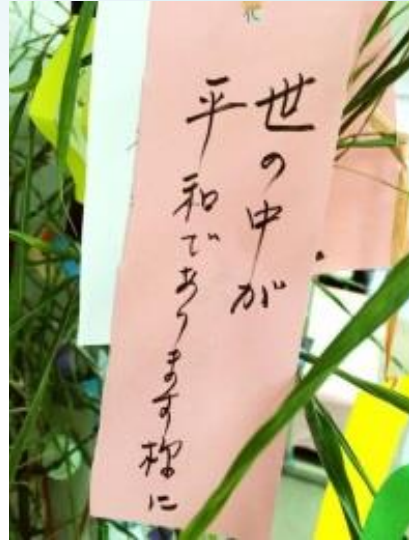 世の中が
平和であります様に